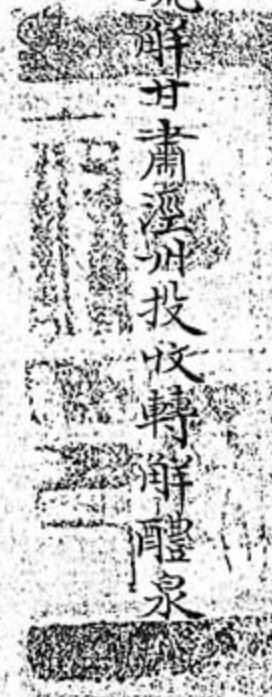 觧甘肅涇州投收轉觧醴泉